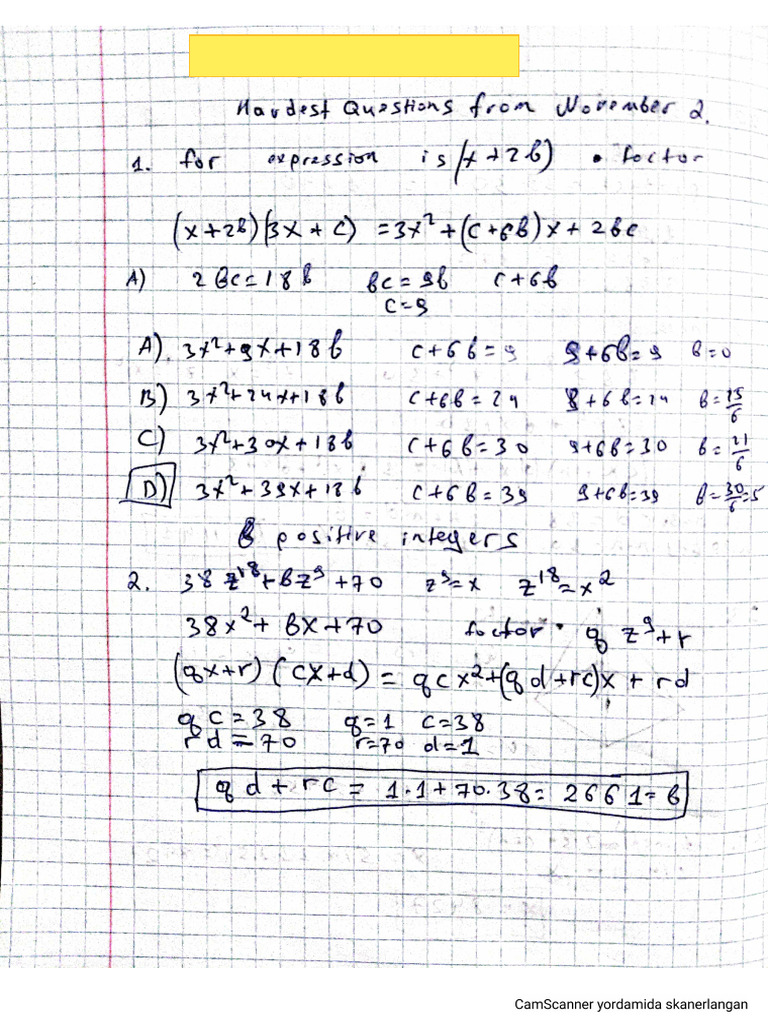 Hardest Questions from November 2.
1. for expression is (x+2b) • factor
(x+2b)(3x+c) = 3x²+(c+6b)x+2bc
A) 2bc=18b bc=9b c+6b
c=9
A) 3x²+9x+18b c+6b=9 9+6b=9 b=0
B) 3x²+24x+18b c+6b=24 8+6b=24 b=15/6
C) 3x²+30x+18b c+6b=30 9+6b=30 b=21/6
D) 3x²+39x+18b c+6b=39 9+6b=39 b=30/6=5
b positive integers
2. 38z¹⁸+bz⁹+70 z⁹=x z¹⁸=x²
38x²+bx+70 factor • qz⁹+r
(qx+r)(cx+d)=qcx²+(qd+rc)x+rd
qc=38 q=1 c=38
rd=70 r=70 d=1
qd+rc=1·1+70·38=2661=b
CamScanner yordamida skanerlangan